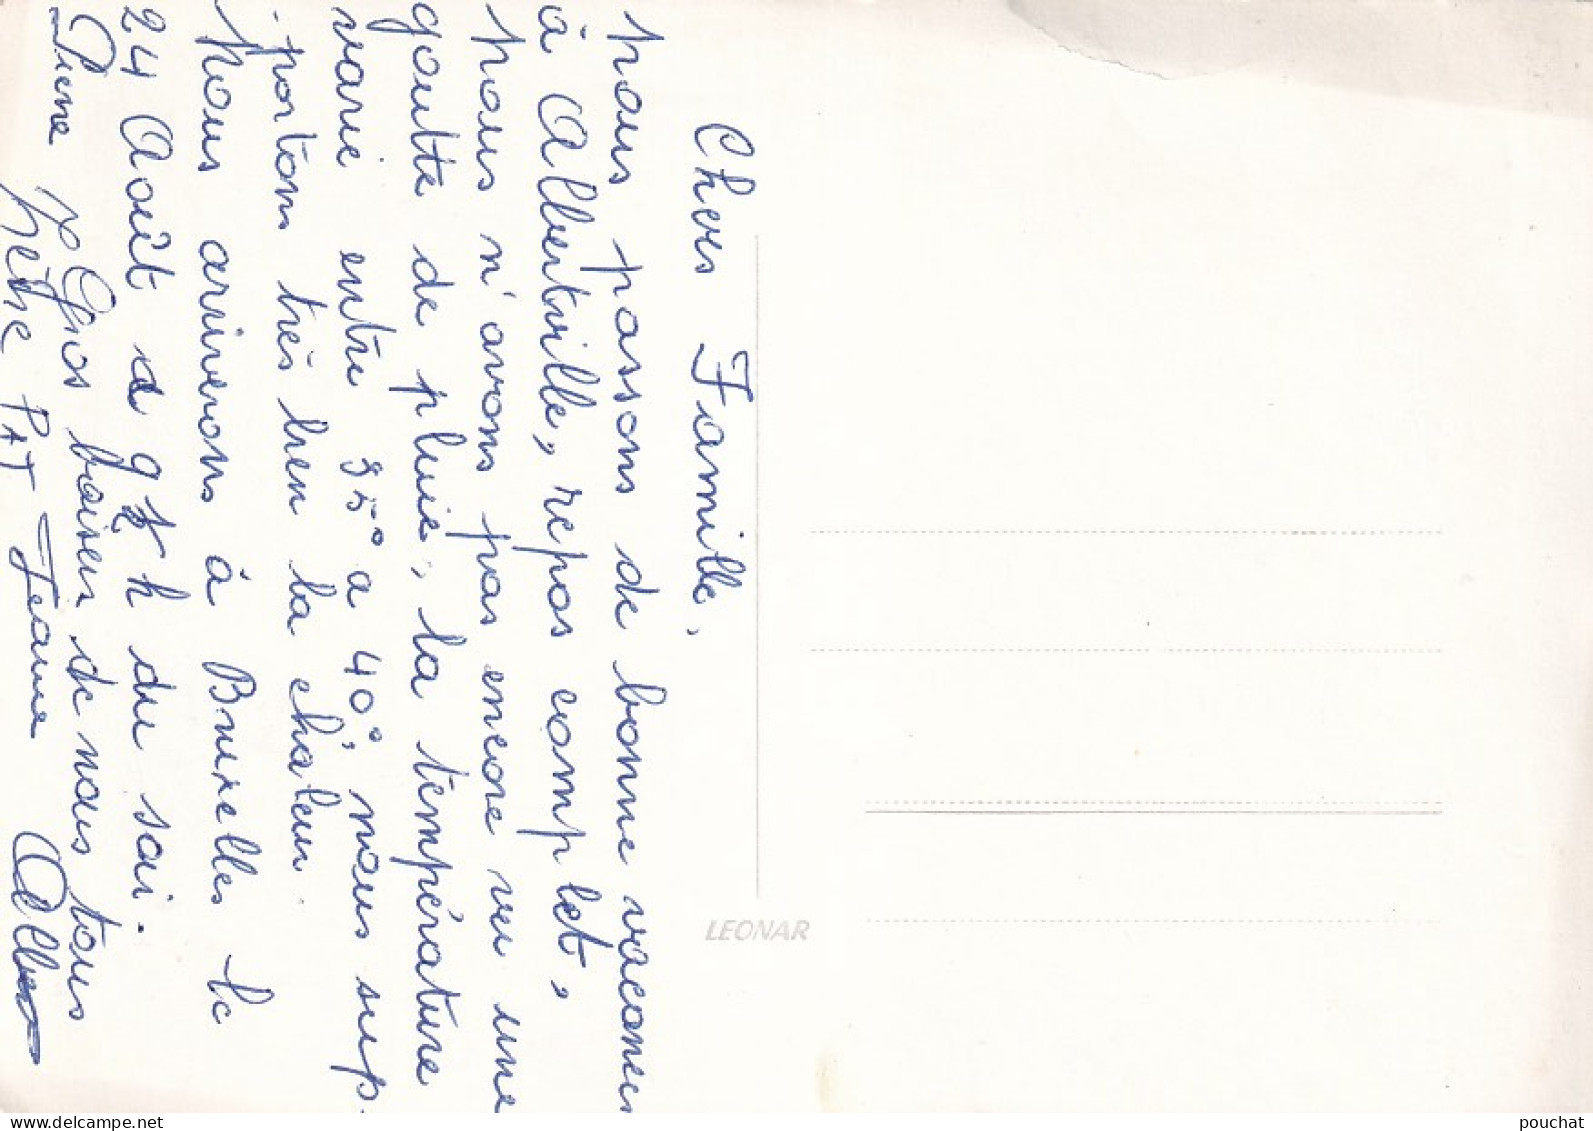 Chers Famille,
nous passons de bonne vacances
à Albertville, repos complet,
nous n'avons pas encore vu une
goutte de pluie, la température
varie entre 35° a 40°, nous sup-
portons très bien la chaleur.
Nous arriverons à Bruxelles le
24 Août a 9½ h du soir.
Gros baiser de nous tous
Pierre PAT Jeanne Albert
LEONAR
www.delcampe.net
pouchat